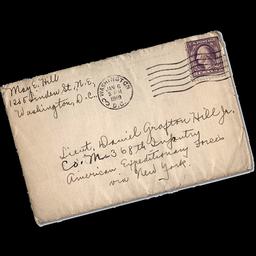 May E. Hill
1250 Linden St., N.E.,
Washington, D.C.
WASHINGTON
JAN 6
1919
D.C.
Lieut. Daniel Grafton Hill Jr.
Co. M-368th Infantry
American Expeditionary Forces
via New York.